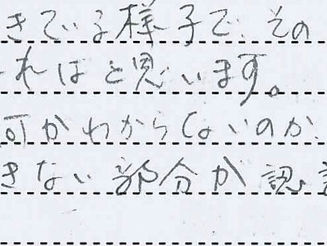 きている様子で、その
ればと思います。
何かわからないのか、
きない部分が認